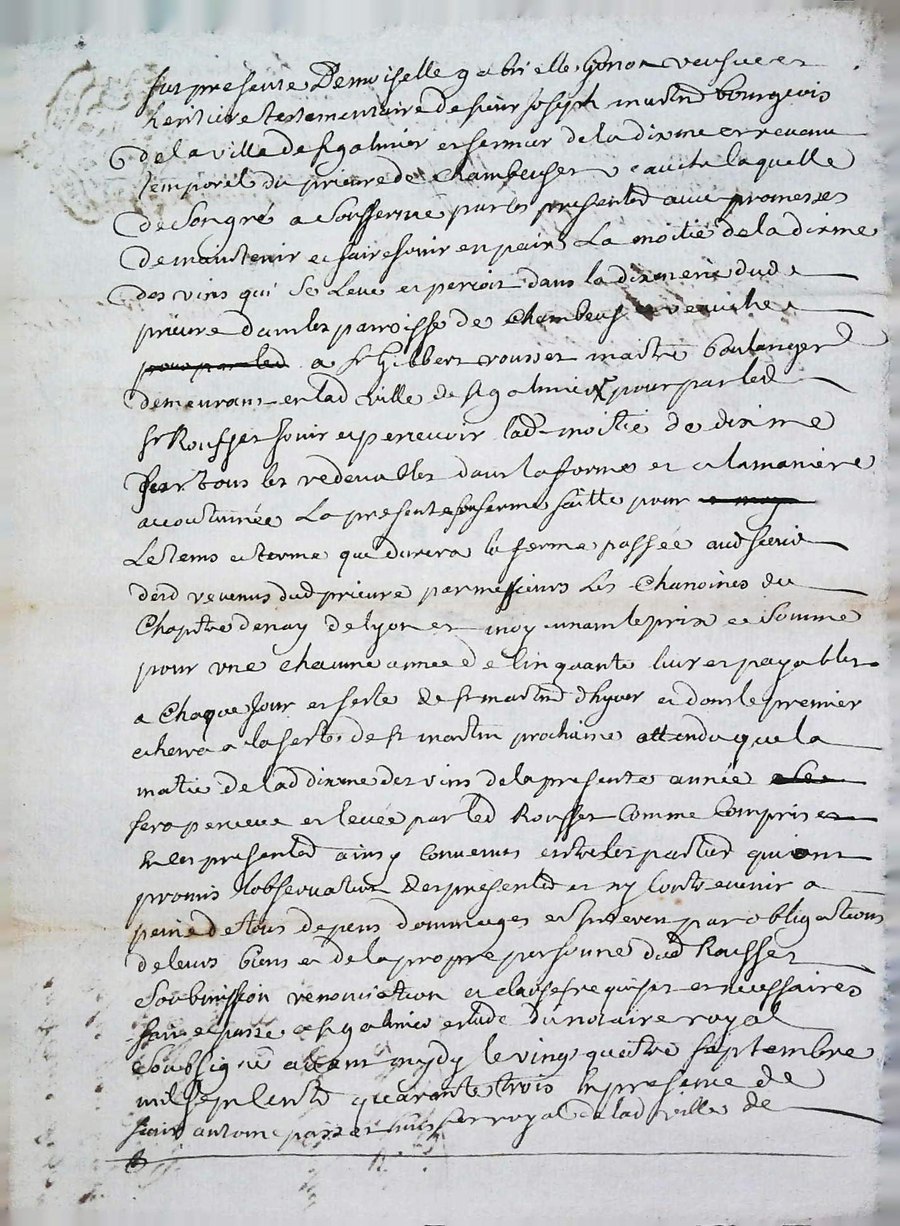 fut presente Demoiselle gabrielle Gonon veufve et
heritiere testamentaire de sieur Joseph martind bourgeois
de la ville de st galmier et fermier de la dixme et revenu
temporel du prieure de Chambeuf et veauche laquelle
de son gré a sousfermé par les presented avec promesses
de maintenir et faire jouir en paix La moitié de la dixme
des vins qui se Leve et perçoit dans la dixmerie dud
prieure dans les paroisse de Chambeuf et veauche
a sr Gilbert rousset maitre boulanger
demeurant en lad ville de st galmier pour par led
sr Rousset jouir et percevoir lad moitié de dixme
sur tous les redevables dans la forme et a la maniere
accoutumée La presente sousferme faitte pour
Le tems et terme que durera la ferme passée aud sieur
desd revenus dud prieure par messieurs Les Chanoines du
Chapitre denay de lyon et moyenant le prix et somme
pour une chacune année de cinquante livres payables
a Chaque Jour et feste de st martind dhyver et dont le premier
echerra a la feste de st martin prochaine attendu que la
moitie de lad dixme des vins de la presente année
sera perceue et levée par led Rousset comme compris es
en les presented ainsy convenus entre les partied qui ont
promis l'observation des presented et ny contrevenir a
peine de tous depens dommages et par obligations
de leurs biens et de la propre personne dud Rousset
Soubmission renonciation et clauses requises et necessaires
fait et passé a st galmier etude du notaire royal
soubsigné avant mydy le vingt quatre septembre
mil sept centd quarante trois en presence de
sieur antoine huissier royal de lad ville de